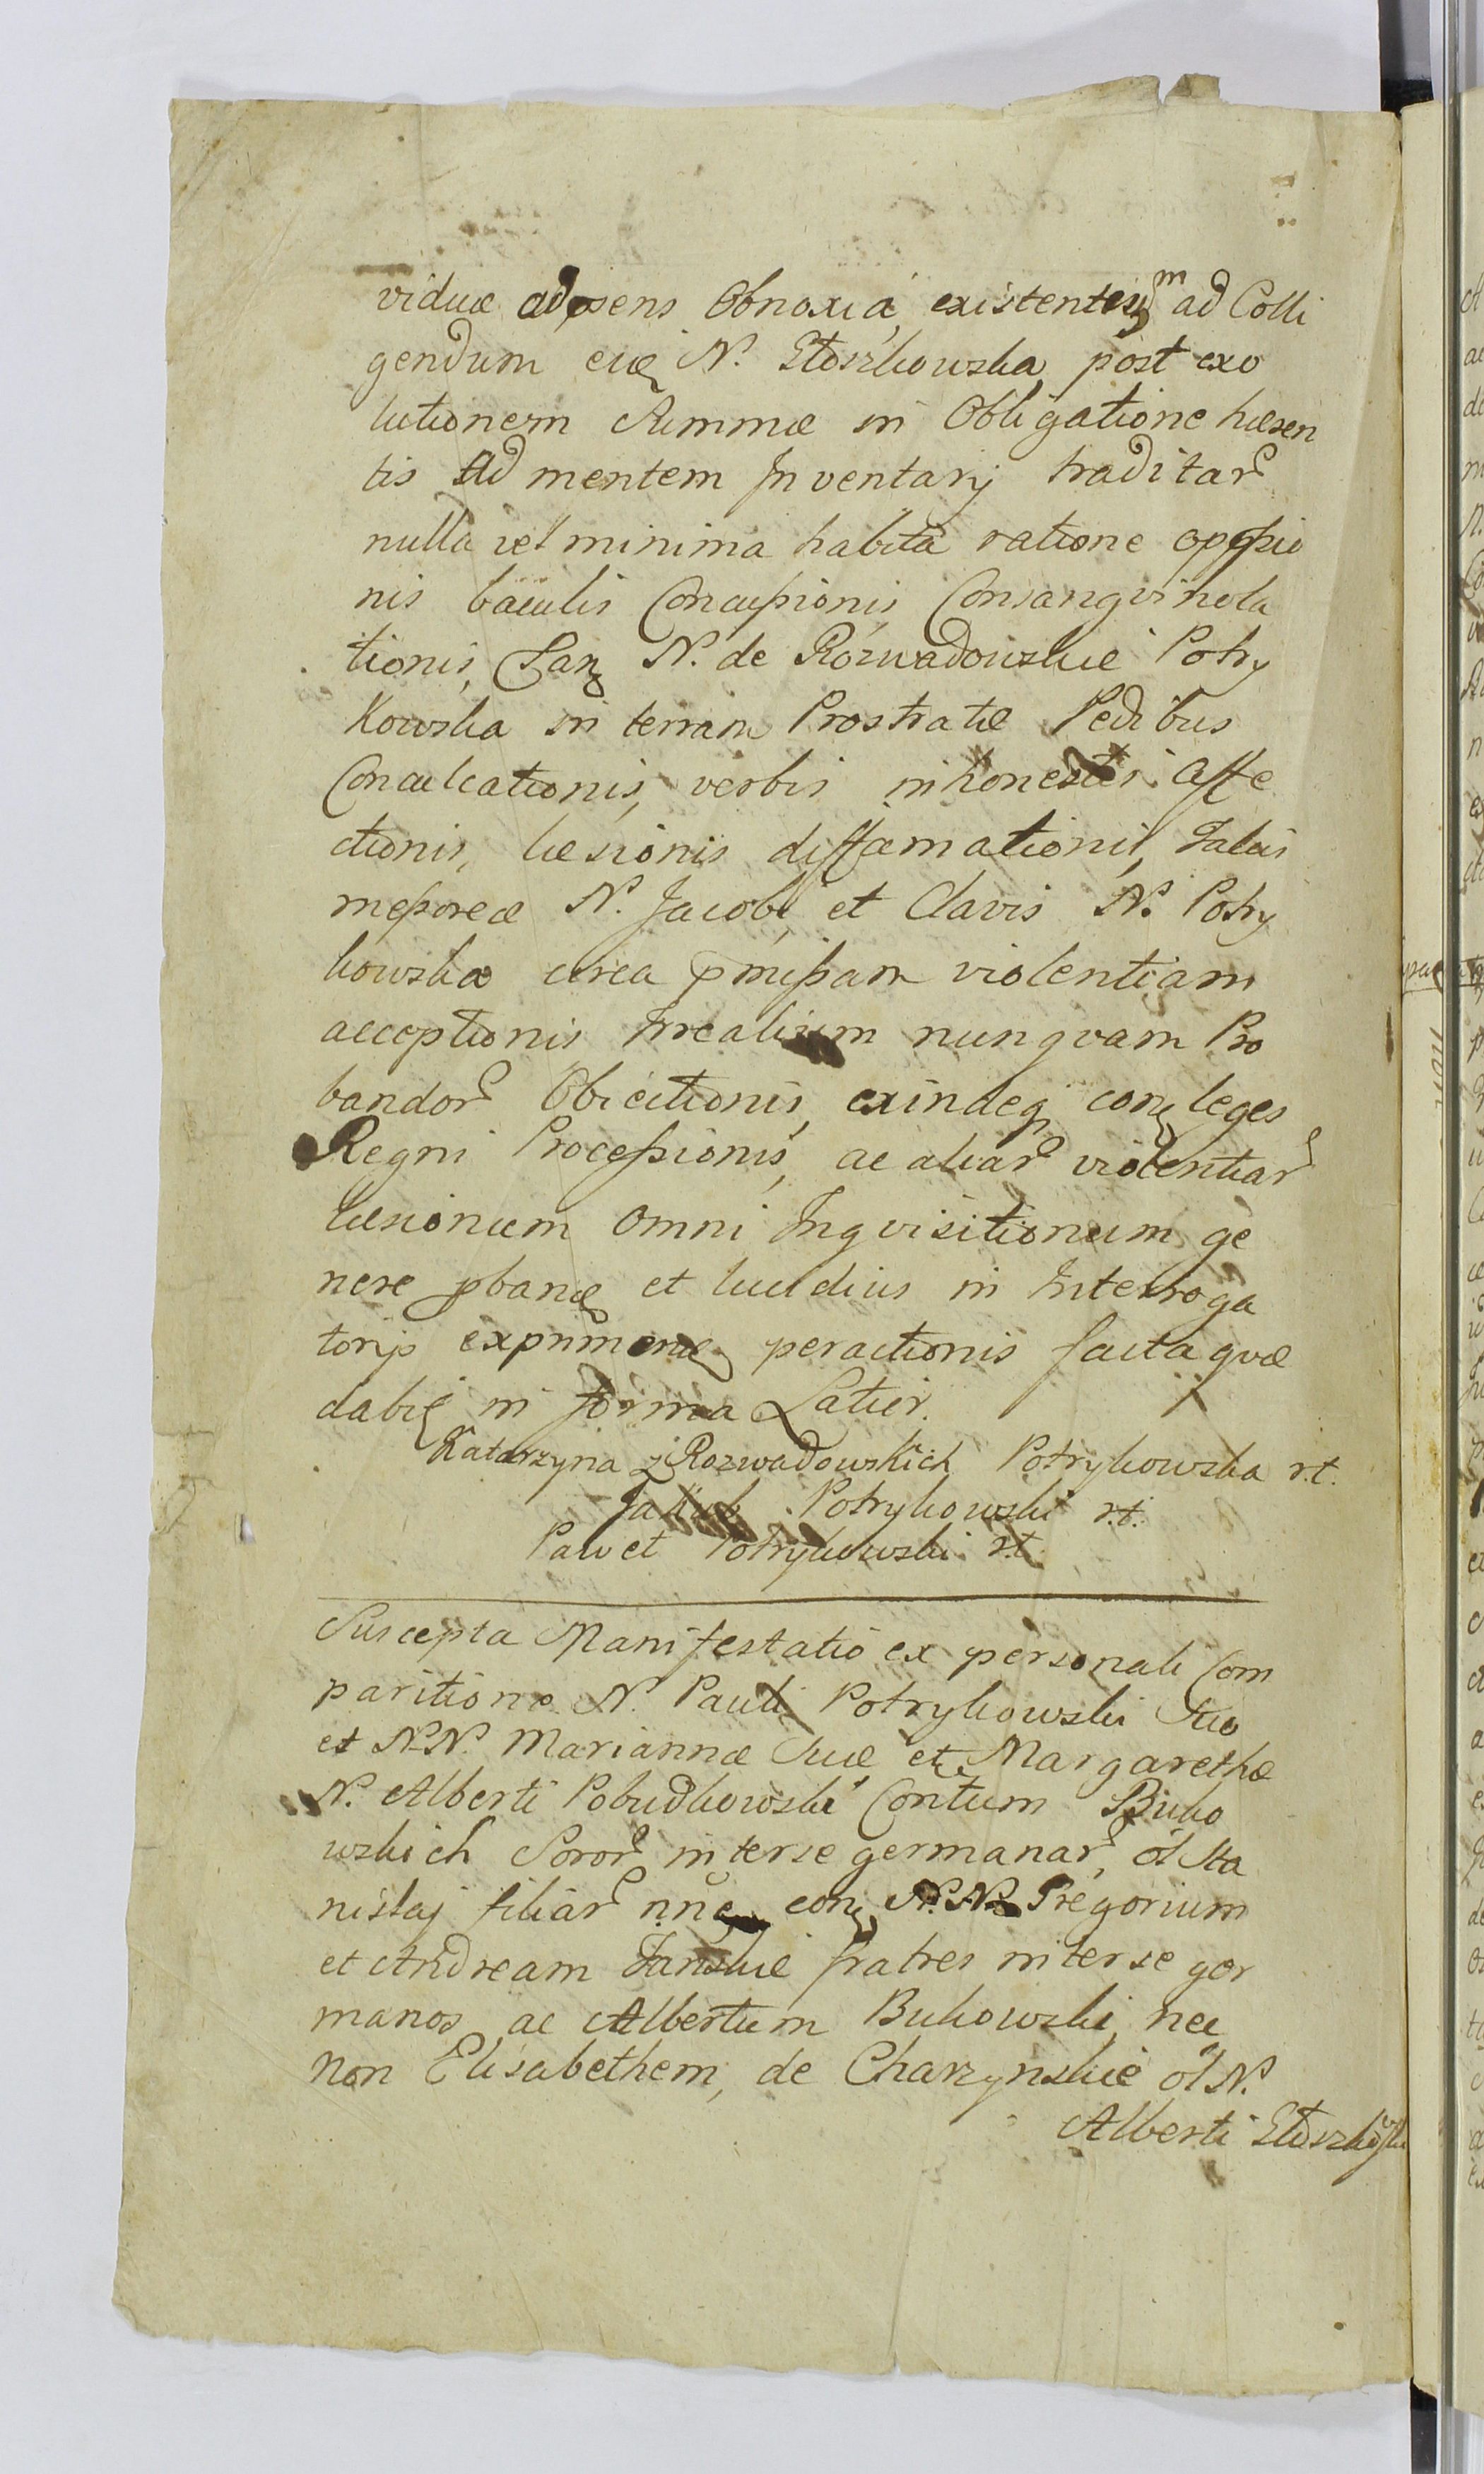 viduæ ad psens Obnoxiá existentem ad Colli
gendum eiq N. Słoszkowska, post exo
lutionem Summæ in Obligatione hæren
tis Ad mentem Inventarÿ traditar
nulla vel minima habita ratione oppssio
nis baculis Concussionis, Consangvinola
tionis, N. de Rózwadowskie Potry
kowska in terram Prostratæ Pedibus
Conculcationis, verbis inhonestis Affe
ctionis, læsionis diffamationis,
N. Jacobi et Clavis N. Potry
kowska circa pmissam violentiam
acceptionis Irrealium nunqvam Pro
bandor Obiectionis, exindeq conq leges
Regni Processionis, ac aliar violentiar
læsionum omni Inqvisitionum ge
nere pbanq et lucidius in Interroga
torÿs exprimenq peractionis facta qvæ
dabiq in forma Latiér.
Katarzyna z Rozwadowskich Potrykowska r.t.
Jakub Potrykowski r.t.
Paweł Potrykowski r.t.
Suscepta Manifestatio ex personali Com
paritione N. Pauli Potrykowski Suo
et N.N. Mariannæ Suæ et Margarethæ
N. Alberti Pobudkowski Contum Buko
wskich Soror inter se germanar, ol Sta
nislaj filiar nnę conq N.N. Gregorium
et Andream Janskie fratres inter se ger
manos ac Albertum Bukowski, nec
non Elisabethem, de Charzynskie ol N.
Alberti Słoszkowski